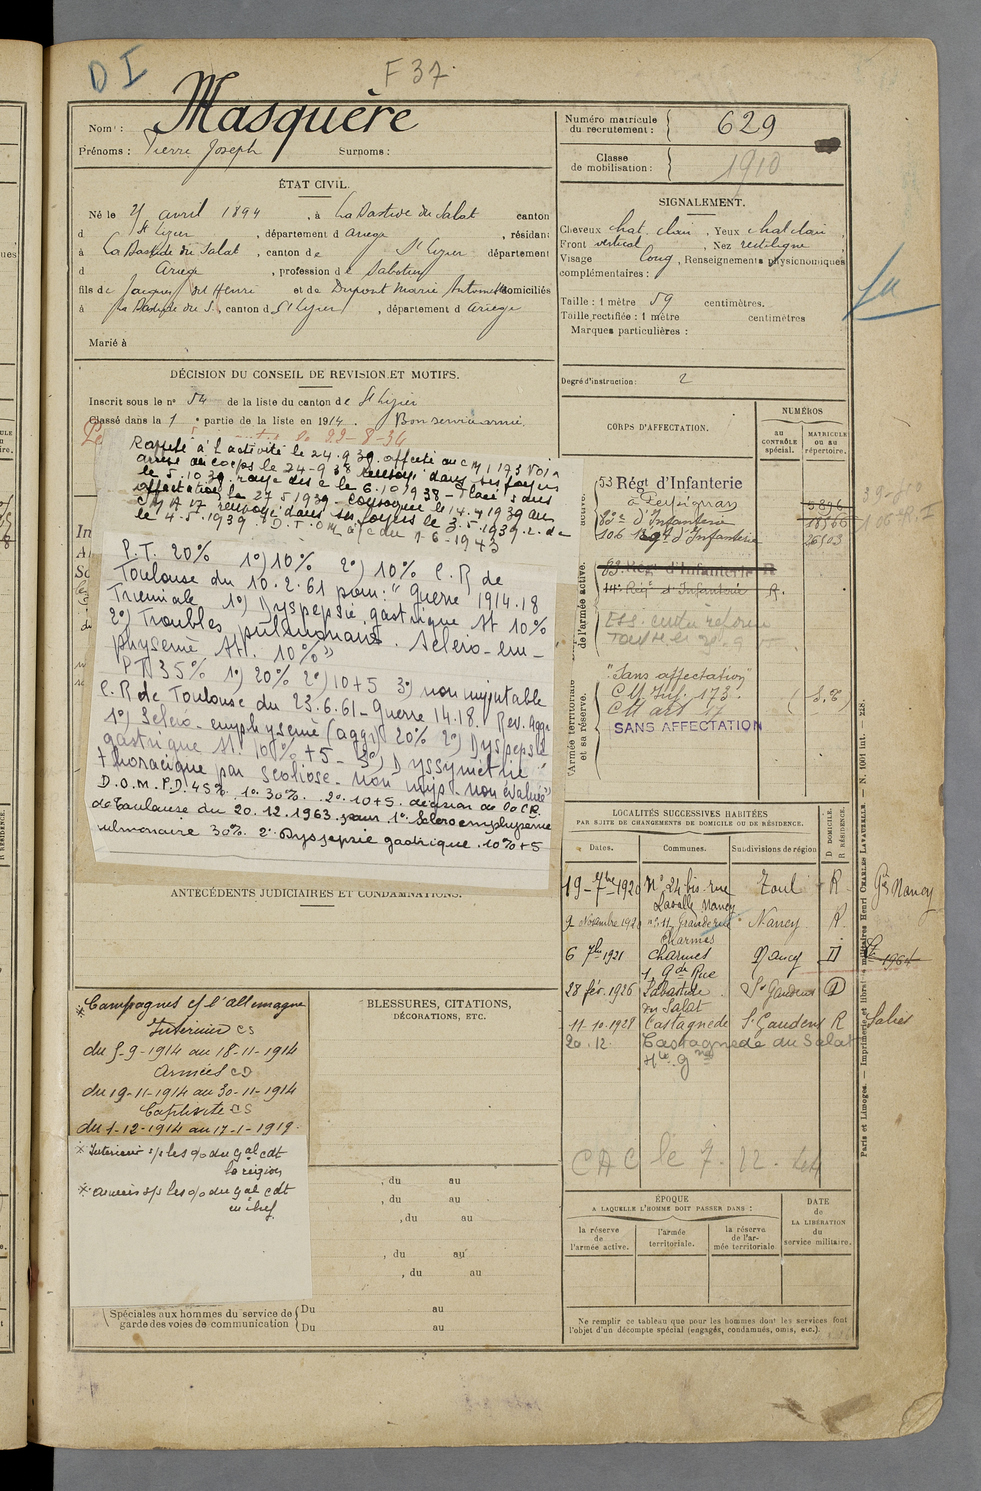 D I
F 37
Nom : Masquère
Prénoms : Pierre Joseph Surnoms :
Numéro matricule du recrutement : 629
Classe de mobilisation : 1910
ÉTAT CIVIL.
Né le 21 avril 1894, à La Bastide du Salat canton
d St Lizier, département d Ariège, résidant
à La Bastide du Salat, canton de St Lizier département
d Ariège, profession de Sabotier
fils de Jacques Henri et de Dupont Marie Antoinette domiciliés
à La Bastide du S., canton d St Lizier, département d Ariège
Marié à
SIGNALEMENT.
Cheveux chat. clair, Yeux chat clair,
Front vertical, Nez rectiligne
Visage long, Renseignements physionomiques
complémentaires :
Taille : 1 mètre 59 centimètres.
Taille rectifiée : 1 mètre centimètres
Marques particulières :
Degré d'instruction : 2
DÉCISION DU CONSEIL DE REVISION ET MOTIFS.
Inscrit sous le no 54 de la liste du canton de St Lizier
Classé dans la 1e partie de la liste en 1914. Bon service armé.
22-8-34
Rappelé à l'activité le 24.9.38. affecté au CMI 173
arrivé au corps le 24-9-38 renvoyé dans ses foyers
le 5.10.38 rayé des c le 6.10.1938 - Placé sans
affectation le 27.5.1939 - convoqué le 14.4.1939 au
CMA 17 renvoyé dans ses foyers le 3.5.1939. r. d. c
le 4.5.1939. D.T.O.M. du 1-6-1943
P.T. 20% 1°) 10% 2°) 10% C.R de
Toulouse du 10.2.61 pour: "Guerre 1914.18
Triennale 1°) Dyspepsie gastrique St 10%
2°) Troubles pulmonaires. Scléro-em-
physème St. 10%"
PT 35% 1°) 20% 2°) 10+5 3°) non imputable
C.R de Toulouse du 23.6.61 - Guerre 14.18. Rev. Aggr
1°) Scléro-emphysème (aggr) 20% 2°) Dyspepsie
gastrique St. 10% +5 - 3°) Dyssymétrie
thoracique par Scoliose - non imp - non évaluée"
D.O.M. P.D. 45% 1°. 30%. 2°. 10+5. décision de la C.R.
de Toulouse du 20.12.1963 pour 1° Scléro emphysème
pulmonaire 30% 2° Dyspepsie gastrique. 10% +5
CORPS D'AFFECTATION.
NUMÉROS
au CONTRÔLE spécial.
MATRICULE ou au répertoire.
53 Régt d'Infanterie
à Perpignan
83e d'Infanterie
106 Regt d'Infanterie
83. Régt d'Infanterie R
14e Régt d'Infanterie R.
"Sans affectation"
CM Inf. 173.
CM art 17
(S.T)
SANS AFFECTATION
de l'armée active.
Armée territoriale et sa réserve.
LOCALITÉS SUCCESSIVES HABITÉES
PAR SUITE DE CHANGEMENTS DE DOMICILE OU DE RÉSIDENCE.
Dates. Communes. Subdivisions de région D DOMICILE. R RÉSIDENCE.
19-7bre 1920 No 24 bis rue Lavalle Nancy Toul R Gs Nancy
9 Novembre 1920 no 11 Grande rue Charmes Nancy R
6 7bre 1921 Charmes 1, Gde Rue Nancy D
28 fév. 1926 Labastide du Salat St Gaudens D
11-10-1929 Castagnede St Gaudens R Salies
20.12. Castagnede du Salat
Hte Gne
CAC le 7. 12.
ANTECÉDENTS JUDICIAIRES ET CONDAMNATIONS.
* Campagnes c/ l'allemagne
Intérieur CS
du 5-9-1914 au 18-11-1914
Armées CD
du 19-11-1914 au 30-11-1914
Captivité CS
du 1-12-1914 au 17-1-1919.
* Intérieur s/s les o/o du Gal cdt
la région
* Armées s/s les o/o du Gal Cdt
en chef
BLESSURES, CITATIONS,
DÉCORATIONS, ETC.
, du au
, du au
, du au
, du au
, du au
Spéciales aux hommes du service de garde des voies de communication
Du au
Du au
ÉPOQUE
A LAQUELLE L'HOMME DOIT PASSER DANS :
la réserve de l'armée active.
l'armée territoriale.
la réserve de l'armée territoriale
DATE de LA LIBÉRATION du service militaire.
Ne remplir ce tableau que pour les hommes dont les services font
l'objet d'un décompte spécial (engagés, condamnés, omis, etc.).
Paris et Limoges. — Imprimerie et librairie militaires Henri CHARLES LAVAUZELLE. — N. 1001 Int. — 228.